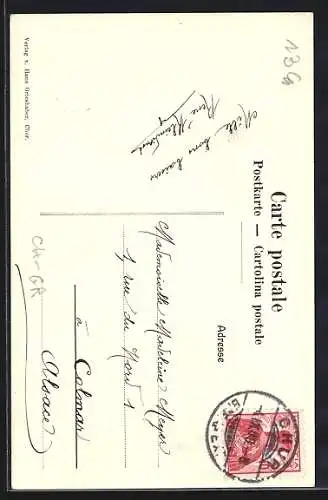 Carte postale
Postkarte — Cartolina postale
Adresse
Mademoiselle Madeleine Meyer
1, rue du Nord 1
à Colmar
Alsace
Mille bons baisers
René
CHUR
Verlag v. Hans
Chur.
CH-GR